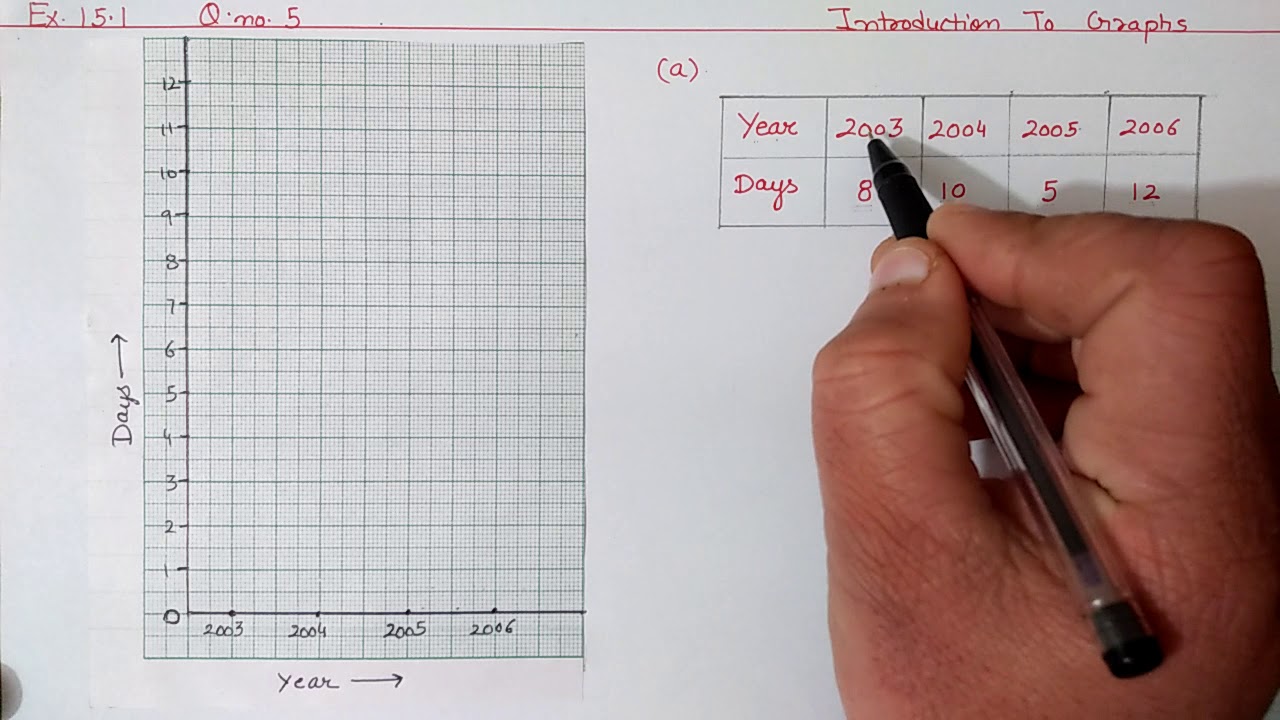 Ex. 15.1 Q. no. 5 Introduction To Graphs
(a).
Year 2003 2004 2005 2006
Days 8 10 5 12
12
11
10
9
8
7
6
5
4
3
2
1
0
Days →
2003 2004 2005 2006
Year →